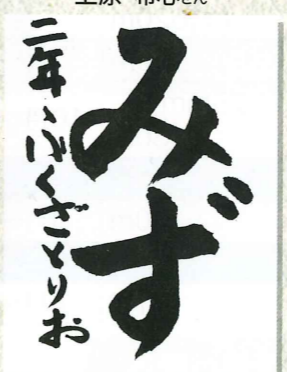 みず
二年 ふくざとりお